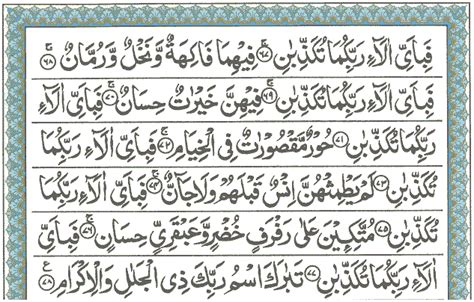 فَبِاَىِّ اٰلَآءِ رَبِّكُمَا تُكَذِّبٰنِ ﴿۶۷﴾ فِيْهِمَا فَاكِهَةٌ وَّنَخْلٌ وَّرُمَّانٌ ﴿۶۸﴾
فَبِاَىِّ اٰلَآءِ رَبِّكُمَا تُكَذِّبٰنِ ﴿۶۹﴾ فِيْهِنَّ خَيْرٰتٌ حِسَانٌ ﴿۷۰﴾ فَبِاَىِّ اٰلَآءِ
رَبِّكُمَا تُكَذِّبٰنِ ﴿۷۱﴾ حُوْرٌ مَّقْصُوْرٰتٌ فِى الْخِيَامِ ﴿۷۲﴾ فَبِاَىِّ اٰلَآءِ رَبِّكُمَا
تُكَذِّبٰنِ ﴿۷۳﴾ لَمْ يَطْمِثْهُنَّ اِنْسٌ قَبْلَهُمْ وَلَا جَآنٌّ ﴿۷۴﴾ فَبِاَىِّ اٰلَآءِ رَبِّكُمَا
تُكَذِّبٰنِ ﴿۷۵﴾ مُتَّكِـِٕيْنَ عَلٰى رَفْرَفٍ خُضْرٍ وَّعَبْقَرِىٍّ حِسَانٍ ﴿۷۶﴾ فَبِاَىِّ
اٰلَآءِ رَبِّكُمَا تُكَذِّبٰنِ ﴿۷۷﴾ تَبٰرَكَ اسْمُ رَبِّكَ ذِى الْجَلٰلِ وَالْاِكْرَامِ ﴿۷۸﴾